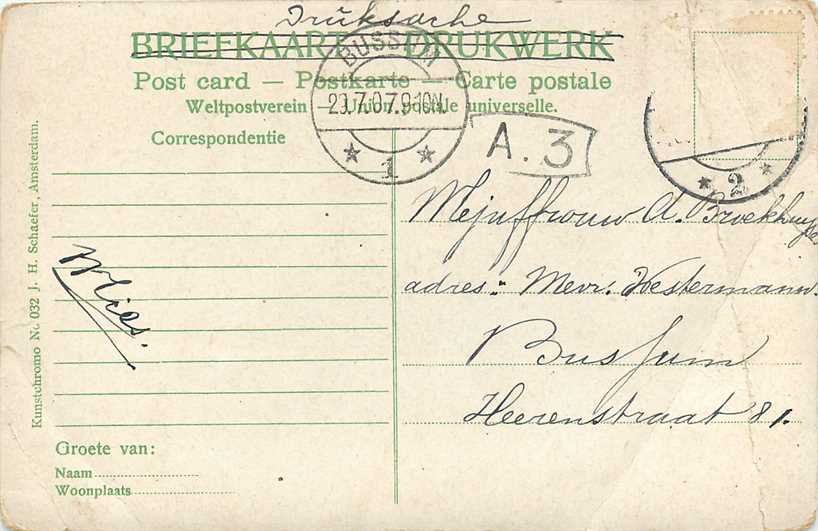 Drüksache
BRIEFKAART DRUKWERK
Post card — Postkarte — Carte postale
Weltpostverein — Union postale universelle.
Correspondentie
BUSSUM
20.7.07.9-10N.
1
A.3
2
Mejuffrouw A. Broekhuy
adres: Mevr. Westermann.
Bussum
Heerenstraat 81.
Mies.
Groete van:
Naam
Woonplaats
Kunstchromo No. 032 J. H. Schaefer, Amsterdam.